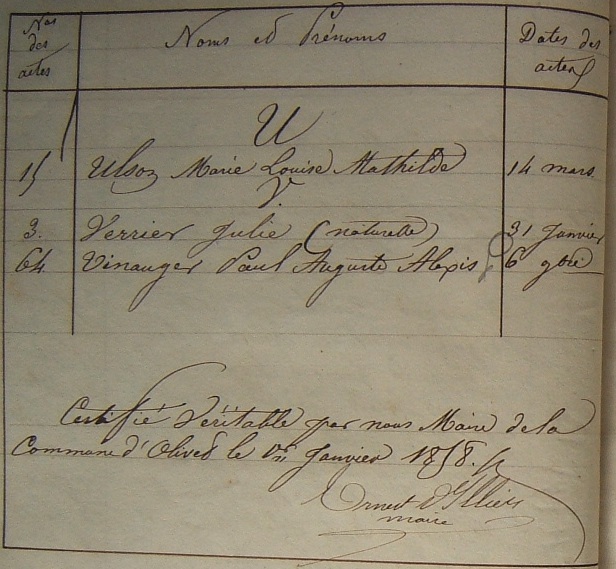 Nos des actes Noms et Prénoms Dates des actes
U
15 Ulsoz Marie Louise Mathilde 14 mars
V.
3. Verrier Julie (naturelle) 31 Janvier
64 Vinauger Paul Auguste Alexis 6 9bre
Certifié Véritable par nous Maire de la
Commune d'Olivet le 1er Janvier 1858.
Ernest d'Illiers
maire